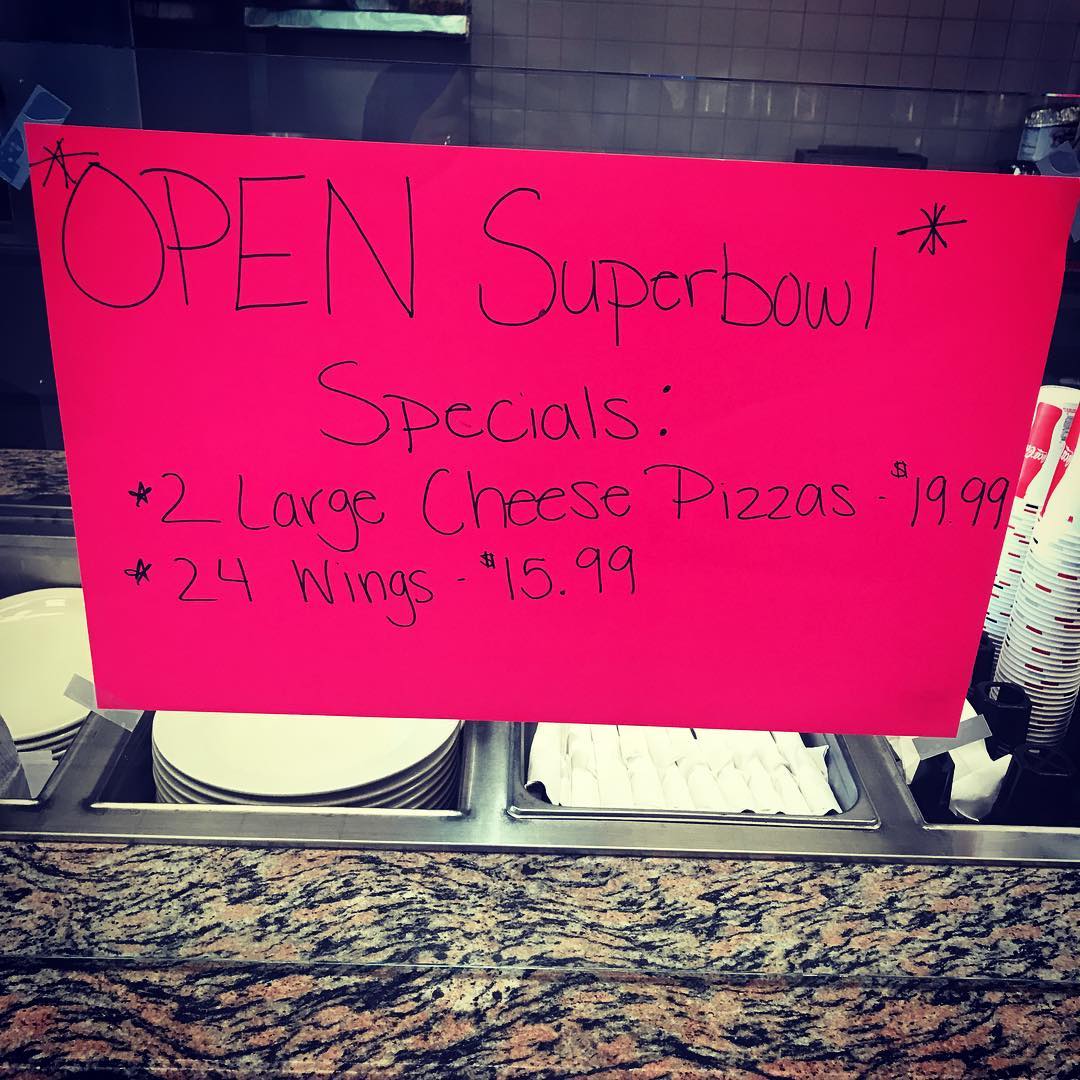 *OPEN Superbowl*
Specials:
*2 Large Cheese Pizzas - $19.99
*24 Wings - $15.99